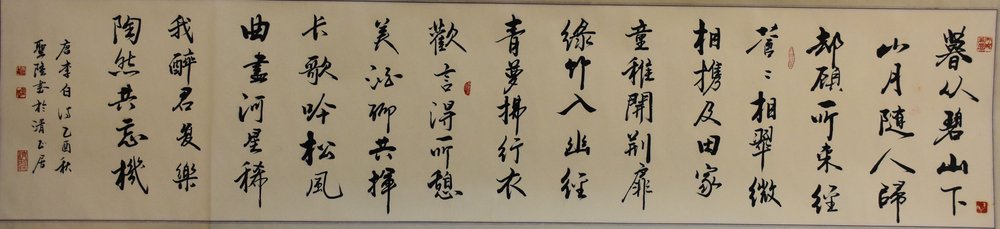 暮从碧山下
山月随人歸
却顧所来徑
蒼々橫翠微
相携及田家
童稚開荆扉
绿竹入幽徑
青萝拂行衣
歡言得所憩
美酒聊共揮
长歌吟松風
曲盡河星稀
我醉君复樂
陶然共忘機
唐李白诗乙酉秋
陸書於清玉居